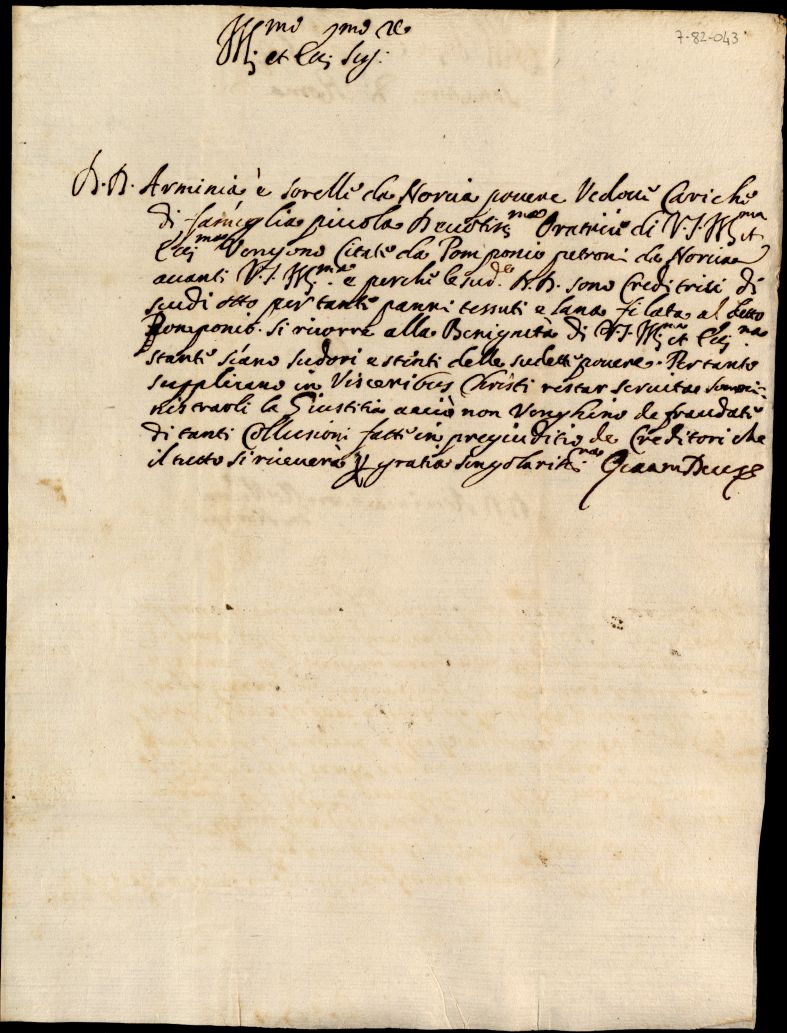 7-82-043
Ill.mo et Ecc.mo Sig.re
N. N. Arminia e sorelle da Norcia povere Vedove Cariche
di famiglia picola Devotiss.me Oratrici di V. S. Ill.ma et
Ecc.ma Vengono Citate da Pomponio petroni da Norcia
avanti V. S. Ill.ma e perche le sud.e N. N. sono Creditrici di
scudi otto per tanti panni tessuti e lana filata al detto
Pomponio. si ricorre alla Benignita di V. S. Ill.ma et Ecc.ma
stante siano sudori e stinti delle sudette povere. Per tanto
supplicano in Visceribus Christi restar servita sommi-
nistrarli la Giustitia acciò non Venghino defraudate
di tanti Collusioni fatte in pregiuditio de Creditori che
il tutto si riceverà per gratia singolariss.ma Quam Deus